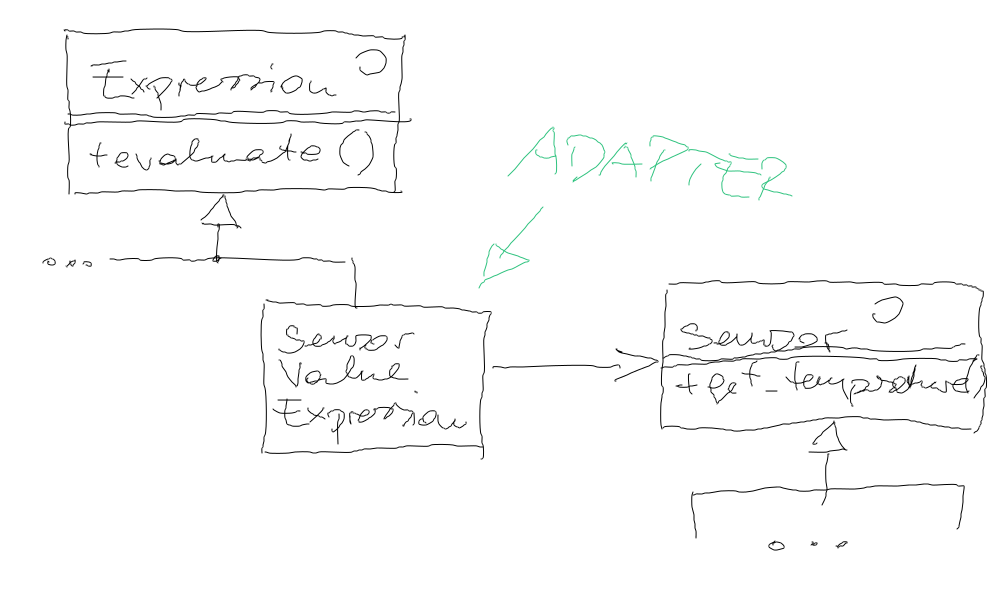 Expression
+evaluate()
ADAPTER
Sensor
Value
Expression
Sensor
+get_temperature()